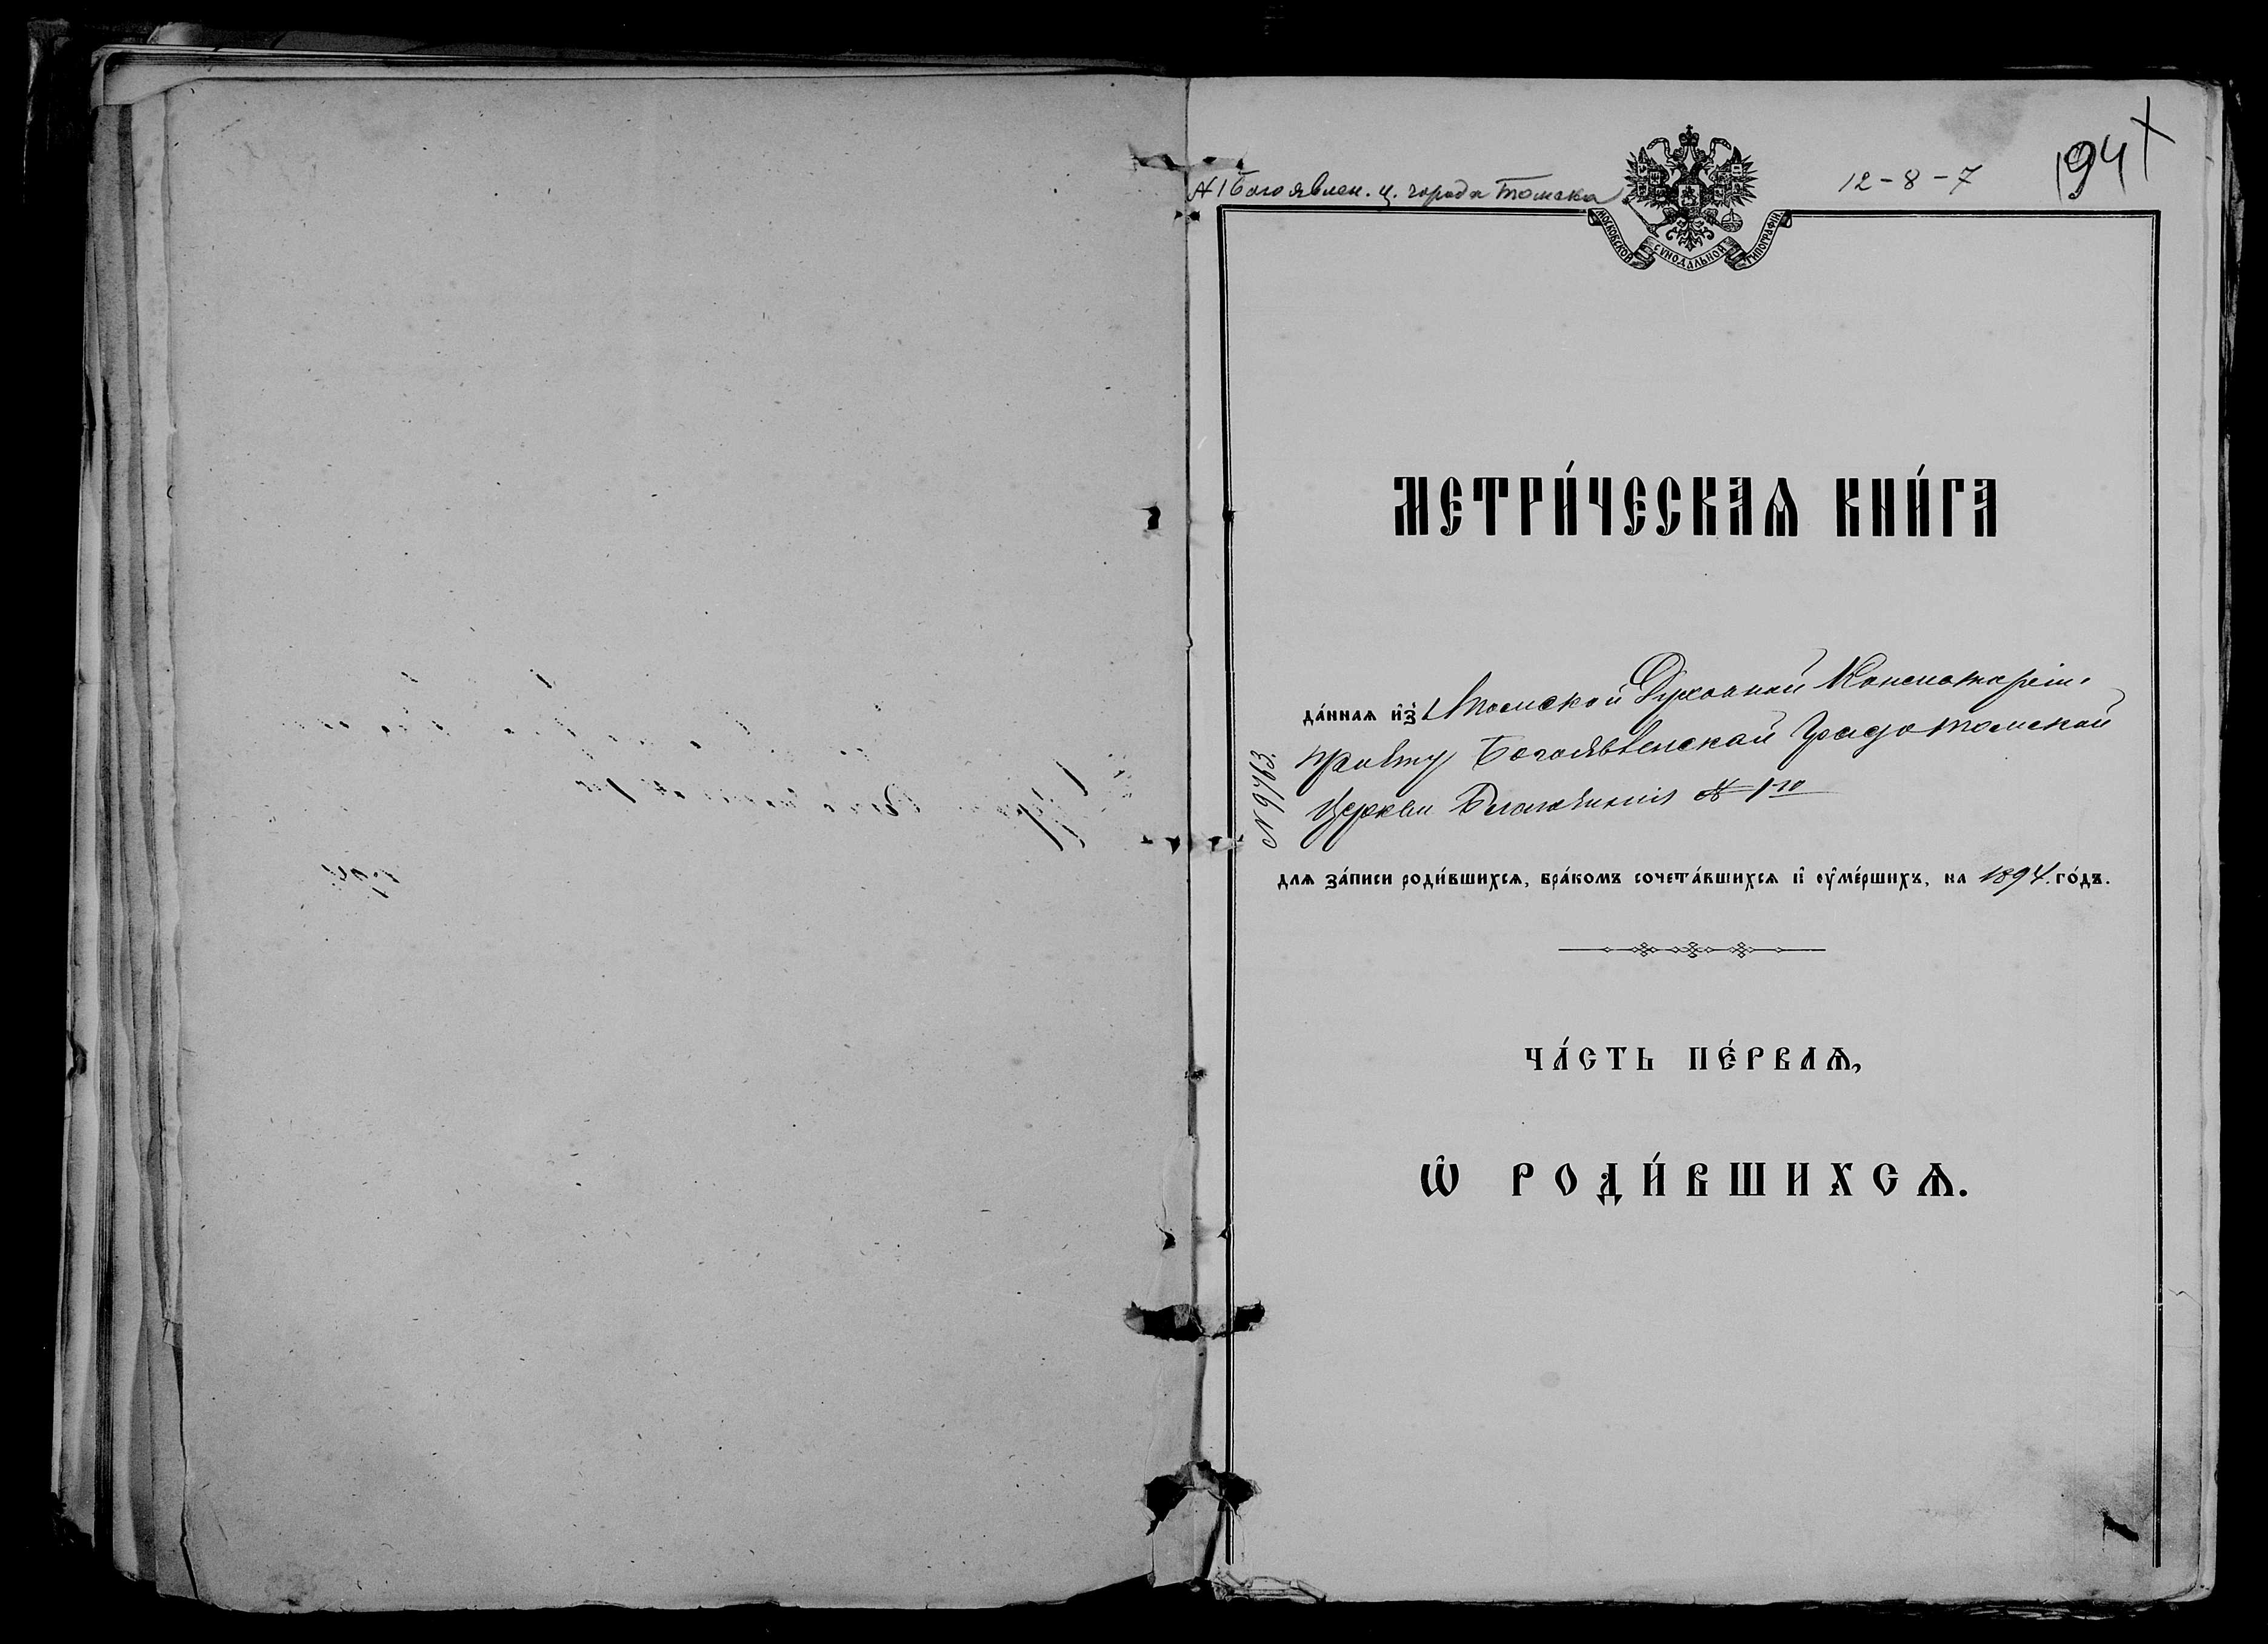 № 1 Богоявлен. ц. города Томска
12-8-7
194
МОСКОВСКОЙ СѴНОДАЛЬНОЙ ТИПОГРАФІИ
МЕТРИ́ЧЕСКАѦ КНИ́ГА
да́ннаѧ и҆з̾ Томской Духовной Консисторіи
причту Богоявленской Градо-Томской
Церкви Благочинія № 1-го
№ 9763.
длѧ за́писи роди́вшихсѧ, бра́комъ сочета́вшихсѧ и҆ ᲂу҆ме́ршихъ, на 1894. го́дъ.
ЧА́СТЬ ПЕ́РВАѦ,
Ѡ҆ РОДИ́ВШИХСѦ.